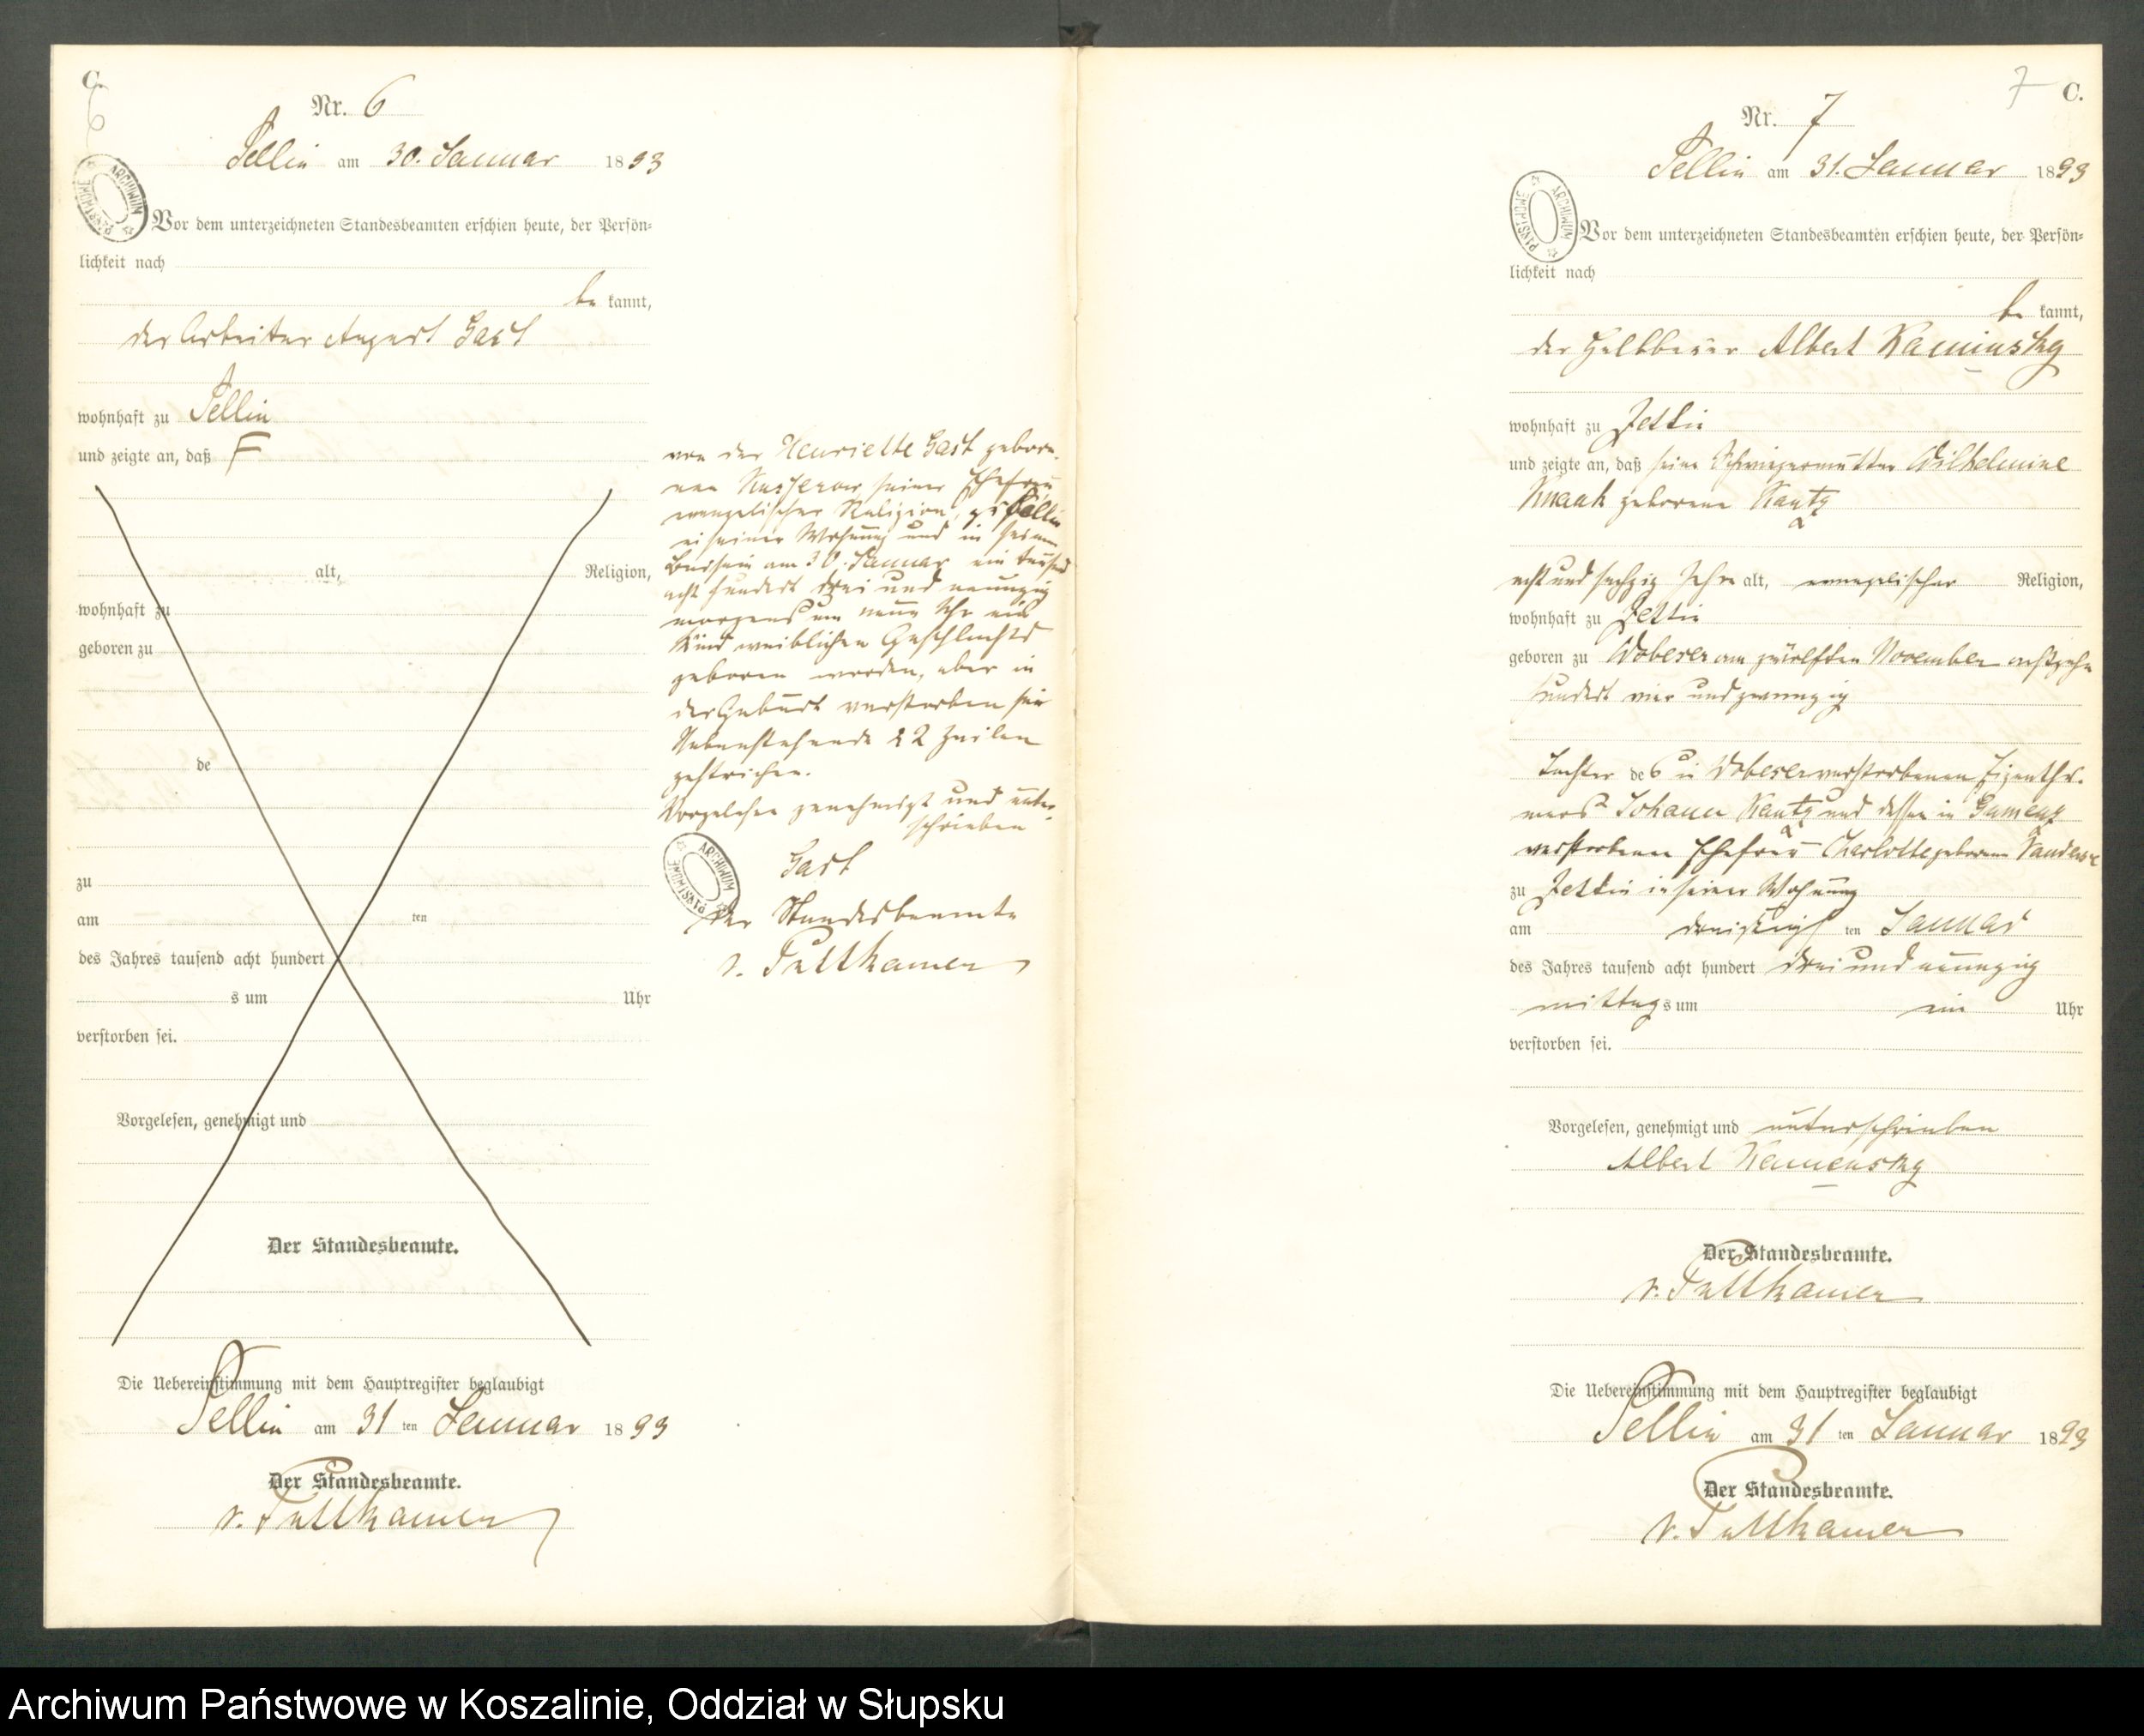 C.
6
Nr. 6
Sellin am 30. Januar 1893
Vor dem unterzeichneten Standesbeamten erschien heute, der Persön-
lichkeit nach
be kannt,
der Arbeiter August Gast
wohnhaft zu Sellin
und zeigte an, daß
alt, Religion,
wohnhaft zu
geboren zu
de
zu
am ten
des Jahres tausend acht hundert
s um Uhr
verstorben sei.
Vorgelesen, genehmigt und
Der Standesbeamte.
Die Uebereinstimmung mit dem Hauptregister beglaubigt
Sellin am 31 ten Januar 1893
Der Standesbeamte.
v. Puttkamer
von der Henriette Gast gebore-
nen seiner Ehefrau
evangelischer Religion, zu Sellin
in seiner Wohnung und in seinem
Beisein am 30. Januar ein tausend
acht hundert drei und neunzig
morgens um neun Uhr ein
Kind weiblichen Geschlechts
geboren worden, aber in
der Geburt verstorben sei
Nebenstehende 22 Zeilen
gestrichen.
Vorgelesen genehmigt und unter-
schrieben
Gast
Der Standesbeamte
v. Puttkamer
ARCHIWUM PAŃSTWOWE
7 C.
Nr. 7
Sellin am 31. Januar 1893
ARCHIWUM PAŃSTWOWE
Vor dem unterzeichneten Standesbeamten erschien heute, der Persön-
lichkeit nach
be kannt,
der Halbbauer Albert Kaminsky
wohnhaft zu Zettin
und zeigte an, daß seine Schwiegermutter Wilhelmine
Knaak geborene Kautz
acht und sechzig Jahre alt, evangelischer Religion,
wohnhaft zu Zettin
geboren zu Wobeser am zwölften November achtzehn
hundert vier und zwanzig
Tochter des in Wobeser verstorbenen Eigenthü-
mers Johann Kautz und dessen in Gumenz
verstorbenen Ehefrau Charlotte geborene
zu Zettin in seiner Wohnung
am dreißigs ten Januar
des Jahres tausend acht hundert drei und neunzig
mittags um ein Uhr
verstorben sei.
Vorgelesen, genehmigt und unterschrieben
Albert Kamensky
Der Standesbeamte.
v. Puttkamer
Die Uebereinstimmung mit dem Hauptregister beglaubigt
Sellin am 31 ten Januar 1893
Der Standesbeamte.
v. Puttkamer
Archiwum Państwowe w Koszalinie, Oddział w Słupsku